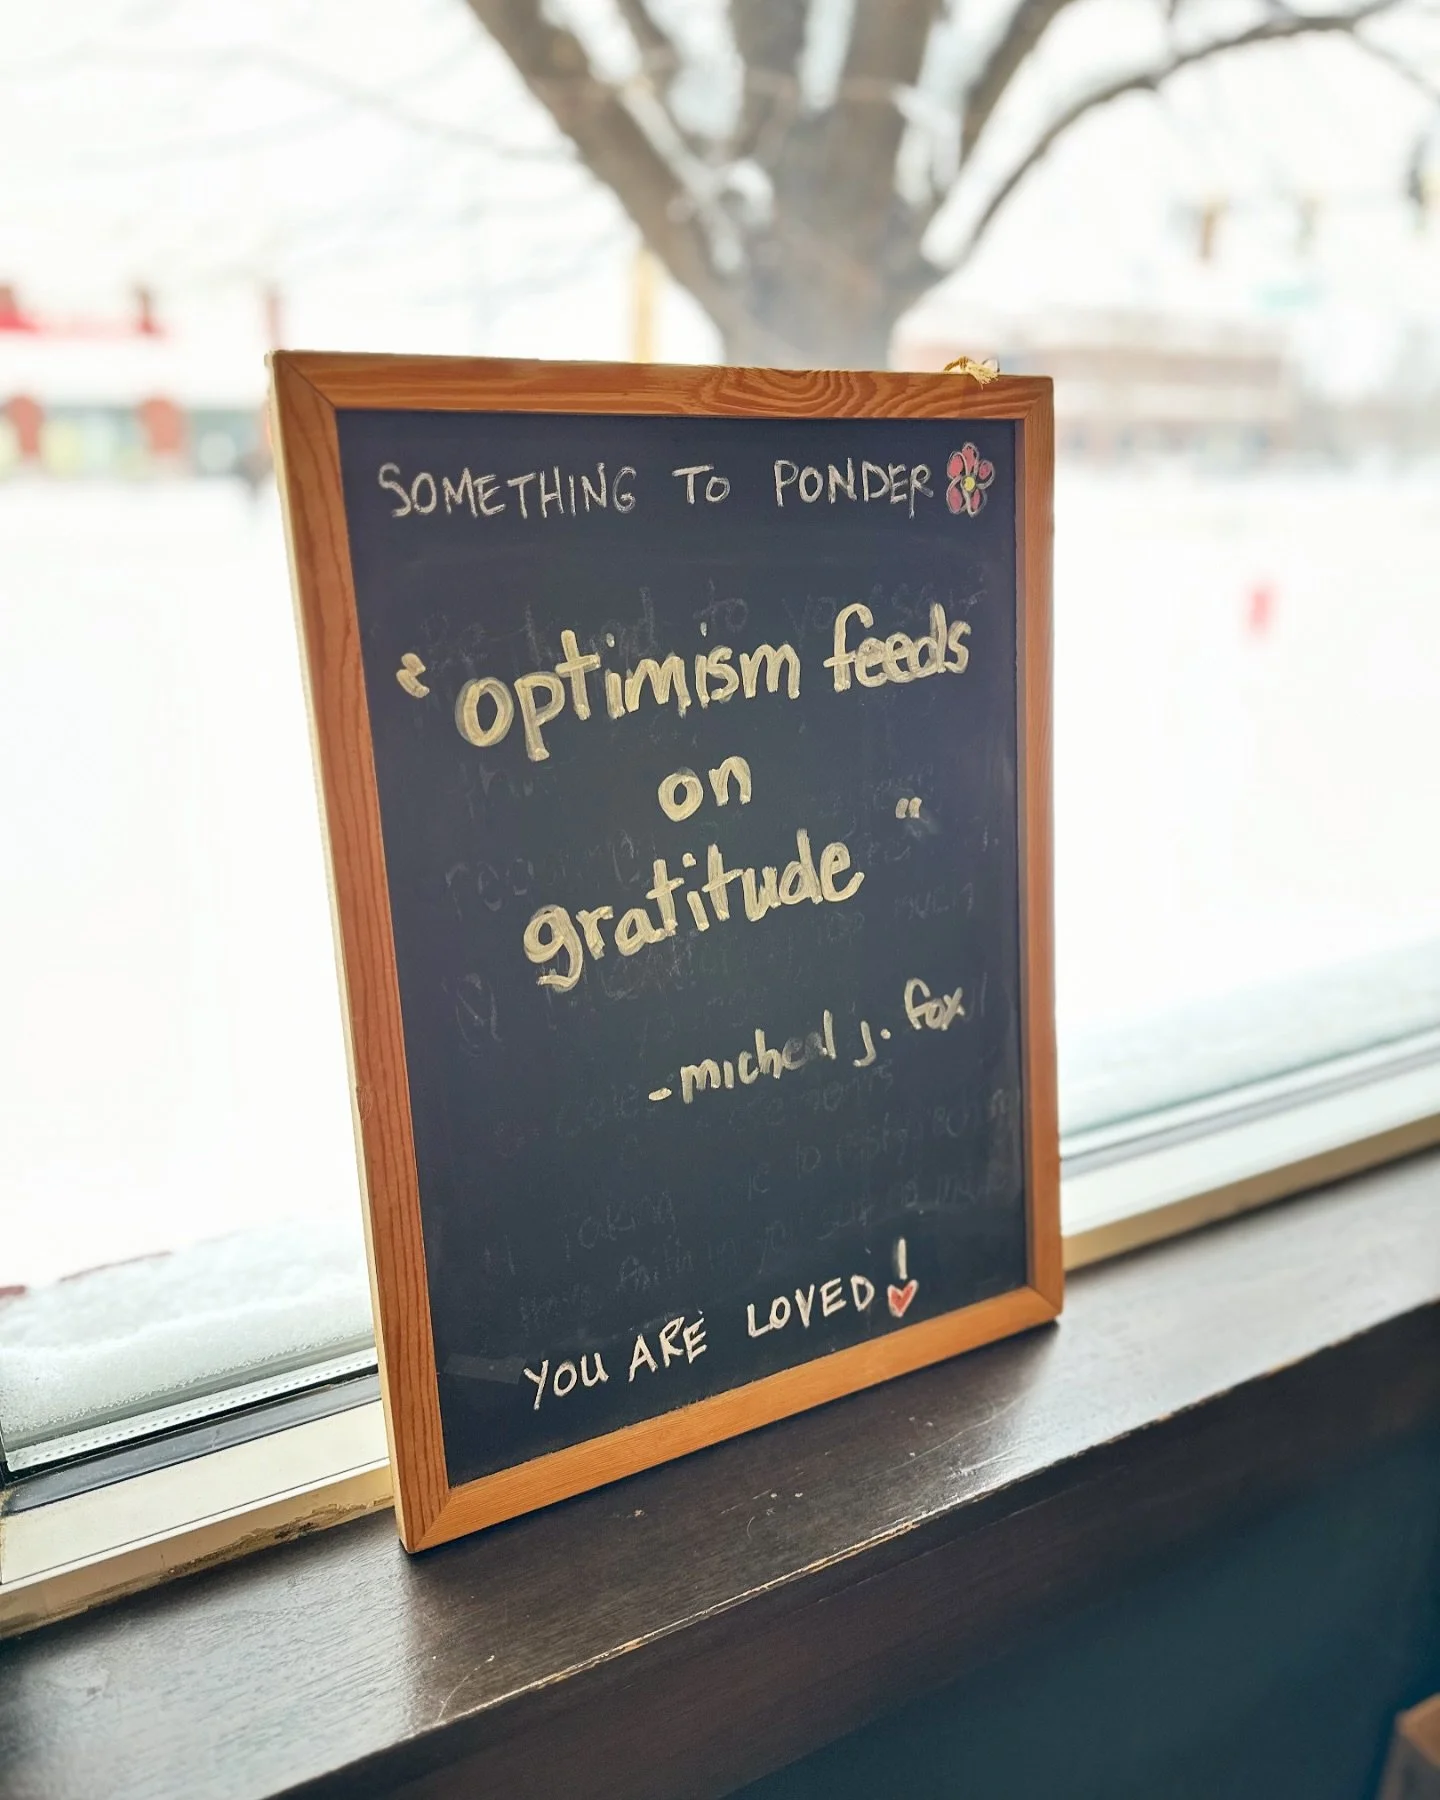 SOMETHING TO PONDER
"optimism feeds
on
gratitude"
-micheal j. fox
YOU ARE LOVED!